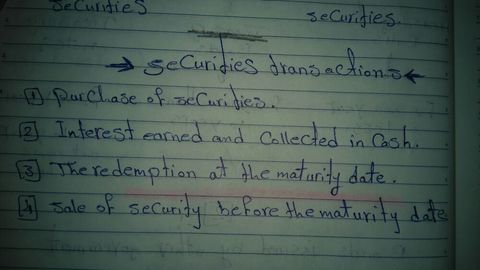 securities securities.
→ securities transactions ←
1 purchase of securities.
2 Interest earned and collected in cash.
3 The redemption at the maturity date.
4 sale of security before the maturity date